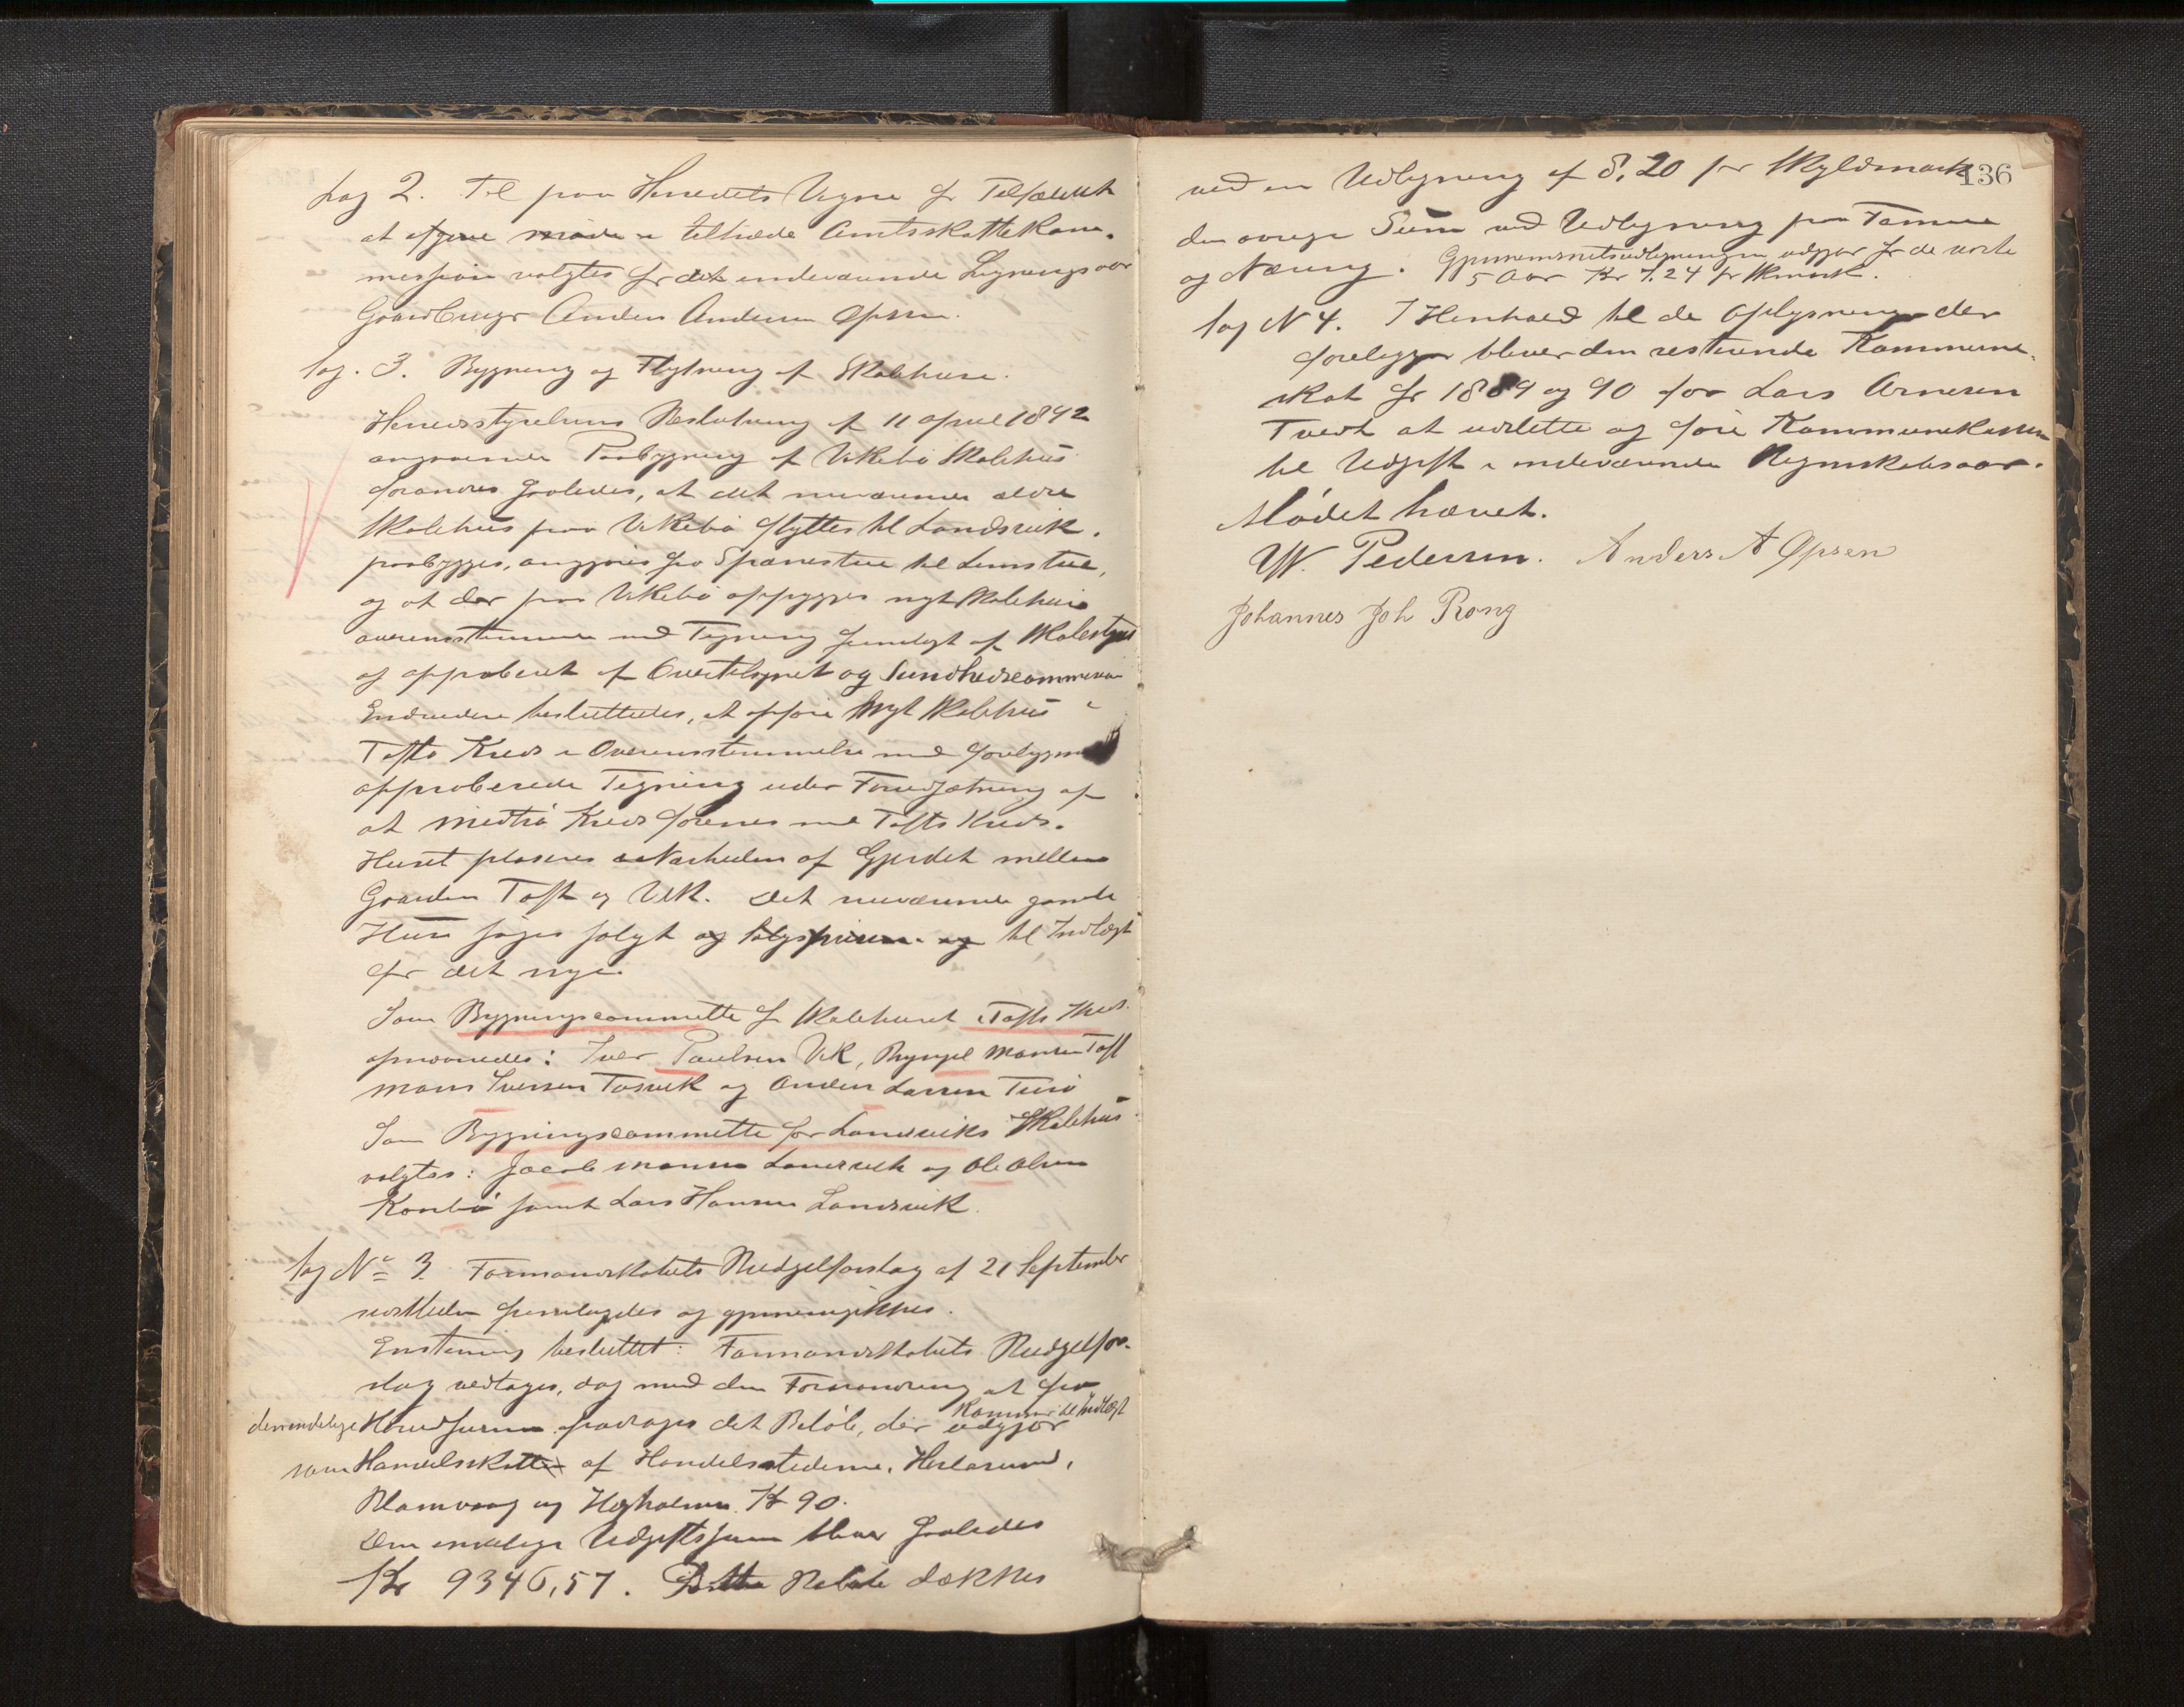 Sag 2. Til paa Herredets Vegne for Tilfældet
at afgive møde i tiltræde Amtsskattekom-
mission valgtes for det indeværende Ligningsaar
Gaardbruger Anders Andersen Opsen.
Sag. 3. Bygning og Flytning af Skolehuse.
Herredsstyrelsens Beslutning af 11 april 1892
angaaende Paabygning af Vikebø Skolehus
forandres saaledes, at det nuværende ældre
Skolehus paa Vikebø flyttes til Landsvik,
paabygges, omgjøres fra Sparrestue til Lemstue,
og at der paa Vikebø opbygges nyt Skolehus
overensstemmende med Tegning fremlagt af Skolestyret
og approberet af Overtilsynet og Sundhedscommission
Endvidere besluttedes, at opføre nyt Skolehus i
Tofts Kreds i Overensstemmelse med foreliggende
approberede Tegning under Forudsætning af
at Midtrø Kreds forenes med Tofts Kreds.
Huset placeres i Nærheden af Gjerdet mellem
Gaarden Toft og Vik. Det nuværende gamle
Hus søges solgt og til Indtægt
for det nye.
Som Bygningscommitte for Skolehuset i Tofts Kreds
opnævnedes: Iver Paulsen Vik, Monsen Toft
Mons Iversen Torsvik og Anders Larsen Turø
Som Bygningscommitte for Landsviks Skolehus
valgtes: Jacob Monsen Landsvik og Ole Olsen
samt Lars Hansen Landsvik.
Sag No 3. Formandskabets Budgetforslag af 21 September
sidstleden fremlagdes og gjennemgikkes.
Enstemmig besluttet: Formandskabets Budgetfor-
slag vedtages, dog med den Forandring at fra
den endelige Hovedsum fradrages det Beløb, der udgjør Kommer til Indtægt
som Handelsskatter af Handelsstederne, Herløsund,
Blomvaag og Hegholmen Kr 90.
Den endelige Udgiftssum bliver saaledes
Kr 9346,57. Dette Beløb dækkes
136
ved en Udligning af 8,20 pr Skyldmark
den øvrige Sum ved Udligning paa Formue
og Næring. Gjennemsnitsudligningen udgjør for de sidste
5 Aar Kr 7.24 pr Skmark.
Sag N 4. I Henhold til de Oplysninger der
foreligger bliver den resterende Kommune-
skat for 1889 og 90 for Lars Arnesen
Tvedt at udslette og føre Kommunekassen
til Udgift i indeværende Regnskabsaar.
Mødet hævet.
W. Pedersen. Anders A Opsen
Johannes Joh Rong